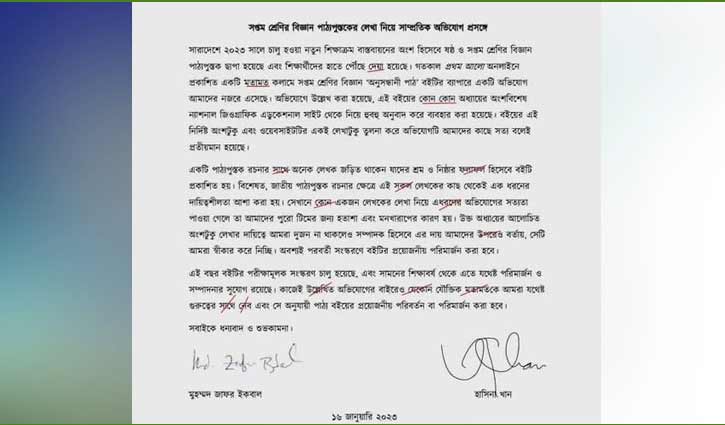 সপ্তম শ্রেণির বিজ্ঞান পাঠ্যপুস্তকের লেখা নিয়ে সাম্প্রতিক অভিযোগ প্রসঙ্গে
সারাদেশে ২০২৩ সালে চালু হওয়া নতুন শিক্ষাক্রম বাস্তবায়নের অংশ হিসেবে ষষ্ঠ ও সপ্তম শ্রেণির বিজ্ঞান
পাঠ্যপুস্তক ছাপা হয়েছে এবং শিক্ষার্থীদের হাতে পৌঁছে দেয়া হয়েছে। গতকাল প্রথম আলো অনলাইনে
প্রকাশিত একটি মতামত কলামে সপ্তম শ্রেণির বিজ্ঞান 'অনুসন্ধানী পাঠ' বইটির ব্যাপারে একটি অভিযোগ
আমাদের নজরে এসেছে। অভিযোগে উল্লেখ করা হয়েছে, এই বইয়ের কোন কোন অধ্যায়ের অংশবিশেষ
ন্যাশনাল জিওগ্রাফিক এডুকেশনাল সাইট থেকে নিয়ে হুবহু অনুবাদ করে ব্যবহার করা হয়েছে। বইয়ের এই
নির্দিষ্ট অংশটুকু এবং ওয়েবসাইটটির একই লেখাটুকু তুলনা করে অভিযোগটি আমাদের কাছে সত্য বলেই
প্রতীয়মান হয়েছে।
একটি পাঠ্যপুস্তক রচনার সাথে অনেক লেখক জড়িত থাকেন যাদের শ্রম ও নিষ্ঠার ফলাফল হিসেবে বইটি
প্রকাশিত হয়। বিশেষত, জাতীয় পাঠ্যপুস্তক রচনার ক্ষেত্রে এই সকল লেখকের কাছ থেকেই এক ধরনের
দায়িত্বশীলতা আশা করা হয়। সেখানে কোন একজন লেখকের লেখা নিয়ে এধরনের অভিযোগের সত্যতা
পাওয়া গেলে তা আমাদের পুরো টিমের জন্য হতাশা এবং মনখারাপের কারণ হয়। উক্ত অধ্যায়ের আলোচিত
অংশটুকু লেখার দায়িত্বে আমরা দুজন না থাকলেও সম্পাদক হিসেবে এর দায় আমাদের উপরেও বর্তায়, সেটি
আমরা স্বীকার করে নিচ্ছি। অবশ্যই পরবর্তী সংস্করণে বইটির প্রয়োজনীয় পরিমার্জন করা হবে।
এই বছর বইটির পরীক্ষামূলক সংস্করণ চালু হয়েছে, এবং সামনের শিক্ষাবর্ষ থেকে এতে যথেষ্ট পরিমার্জন ও
সম্পাদনার সুযোগ রয়েছে। কাজেই উল্লেখিত অভিযোগের বাইরেও যেকোন যৌক্তিক মতামতকে আমরা যথেষ্ট
গুরুত্বের সাথে নেব এবং সে অনুযায়ী পাঠ্য বইয়ের প্রয়োজনীয় পরিবর্তন বা পরিমার্জন করা হবে।
সবাইকে ধন্যবাদ ও শুভকামনা।
মুহম্মদ জাফর ইকবাল
হাসিনা খান
১৬ জানুয়ারি ২০২৩